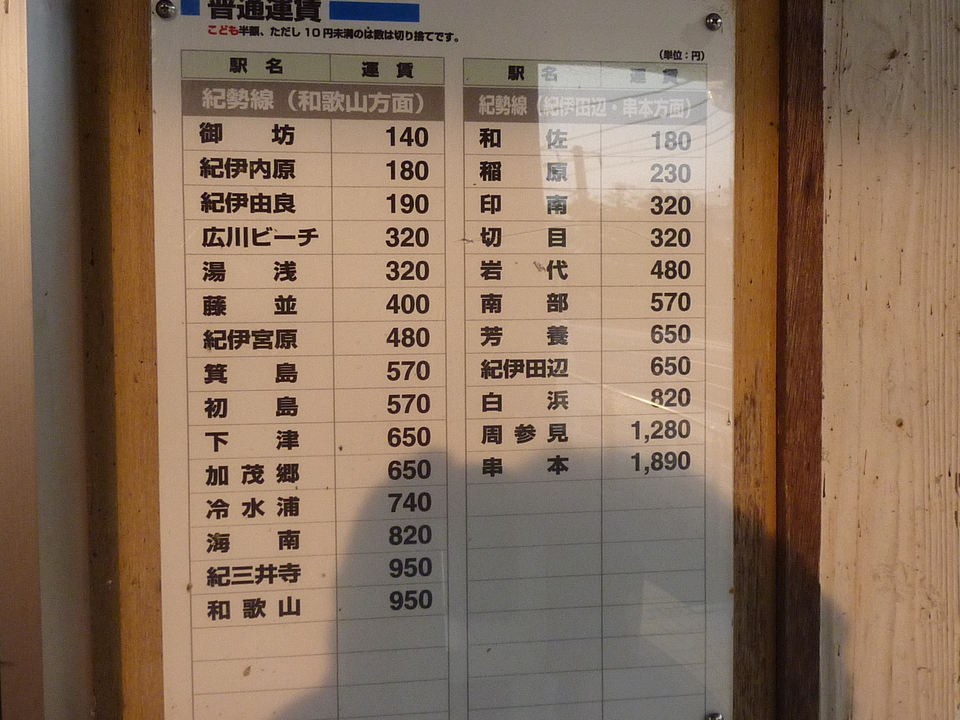 普通運賃
こども半額、ただし 10 円未満のは数は切り捨てです。
(単位：円)
駅名 運賃
紀勢線（和歌山方面）
御坊 140
紀伊内原 180
紀伊由良 190
広川ビーチ 320
湯浅 320
藤並 400
紀伊宮原 480
箕島 570
初島 570
下津 650
加茂郷 650
冷水浦 740
海南 820
紀三井寺 950
和歌山 950
駅名 運賃
紀勢線（紀伊田辺・串本方面）
和佐 180
稲原 230
印南 320
切目 320
岩代 480
南部 570
芳養 650
紀伊田辺 650
白浜 820
周参見 1,280
串本 1,890